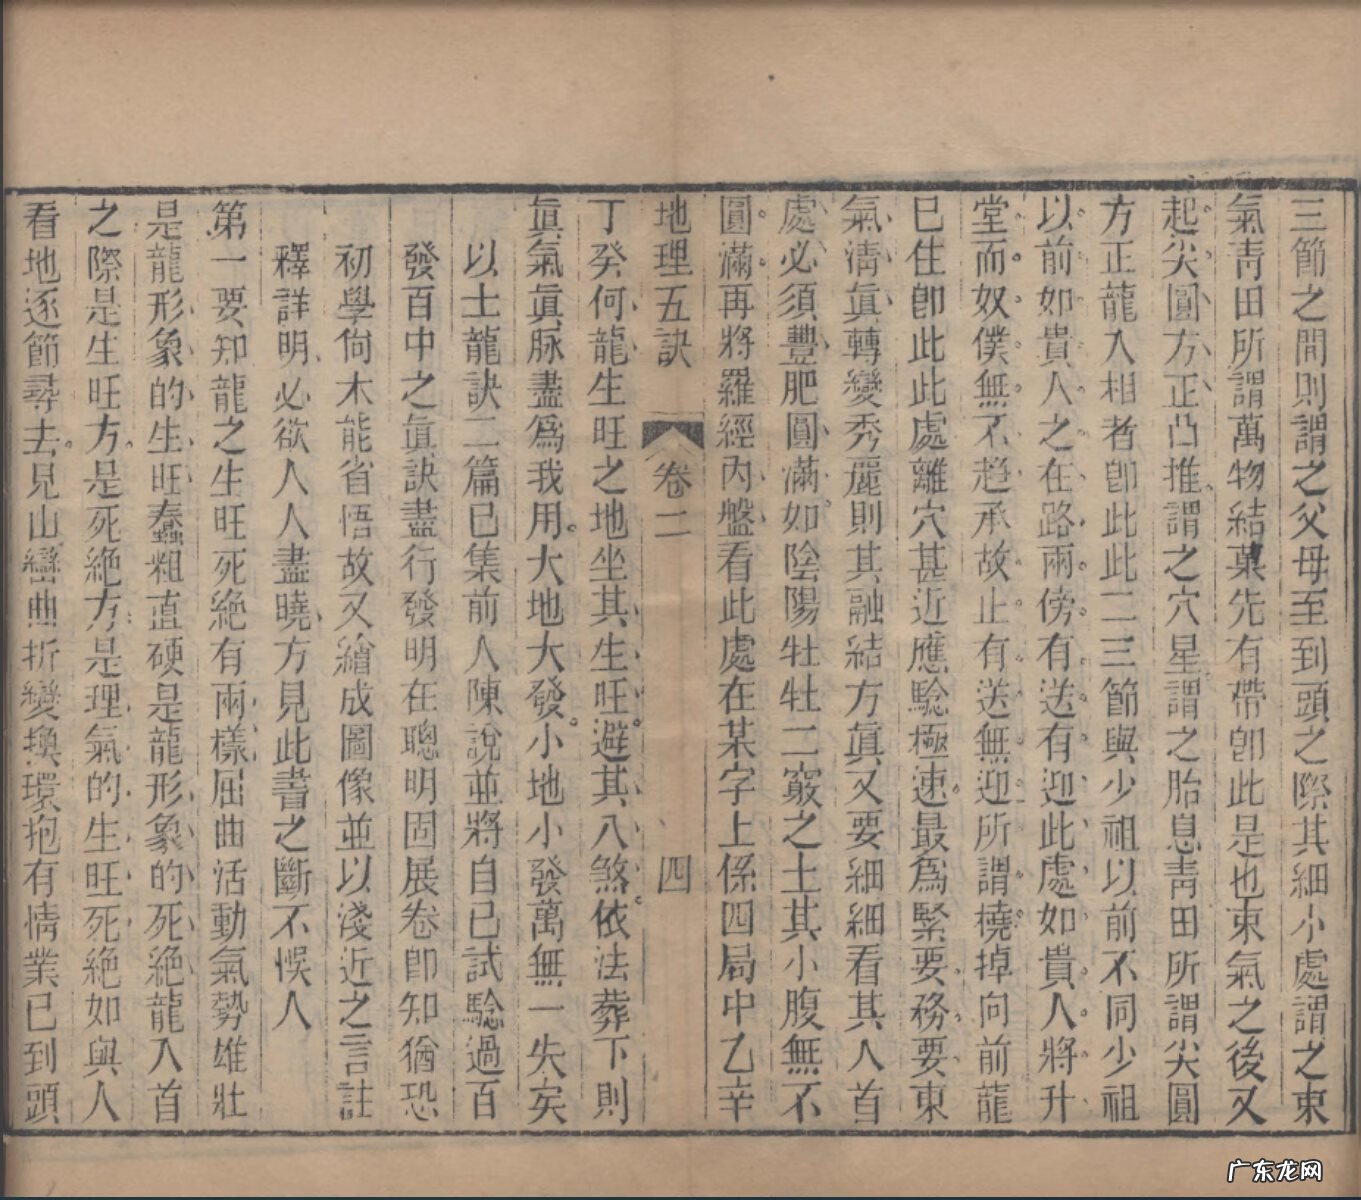 三節之間則謂之父母至到頭之際其細小處謂之束
氣靑田所謂萬物結菓先有帶卽此是也束氣之後又
起尖圓方正凸推謂之穴星謂之胎息靑田所謂尖圓
方正龍入相者卽此此二三節與少祖以前不同少祖
以前如貴人之在路兩傍有送有迎此處如貴人將升
堂而奴僕無不趨承故止有送無迎所謂橈掉向前龍
已住卽此此處離穴甚近應驗極速最爲緊要務要束
氣淸眞轉變秀麗則其融結方眞又要細細看其入首
處必須豐肥圓滿如陰陽牡牡二竅之土其小腹無不
圓滿再將羅經內盤看此處在某字上係四局中乙辛
地理五訣 卷二 四
丁癸何龍生旺之地坐其生旺避其八煞依法葬下則
眞氣眞脉盡爲我用大地大發小地小發萬無一失矣
以土龍訣二篇已集前人陳說並將自己試驗過百
發百中之眞訣盡行發明在聰明固展卷卽知猶恐
初學尙木能省悟故又繪成圖像並以淺近之言註
釋詳明必欲人人盡曉方見此書之斷不悞人
第一要知龍之生旺死絶有兩樣屈曲活動氣勢雄壯
是龍形象的生旺蠢粗直硬是龍形象的死絶龍入首
之際是生旺方是死絶方是理氣的生旺死絶如與人
看地逐節尋去見山巒曲折變換環抱有情業已到頭
广东龙网